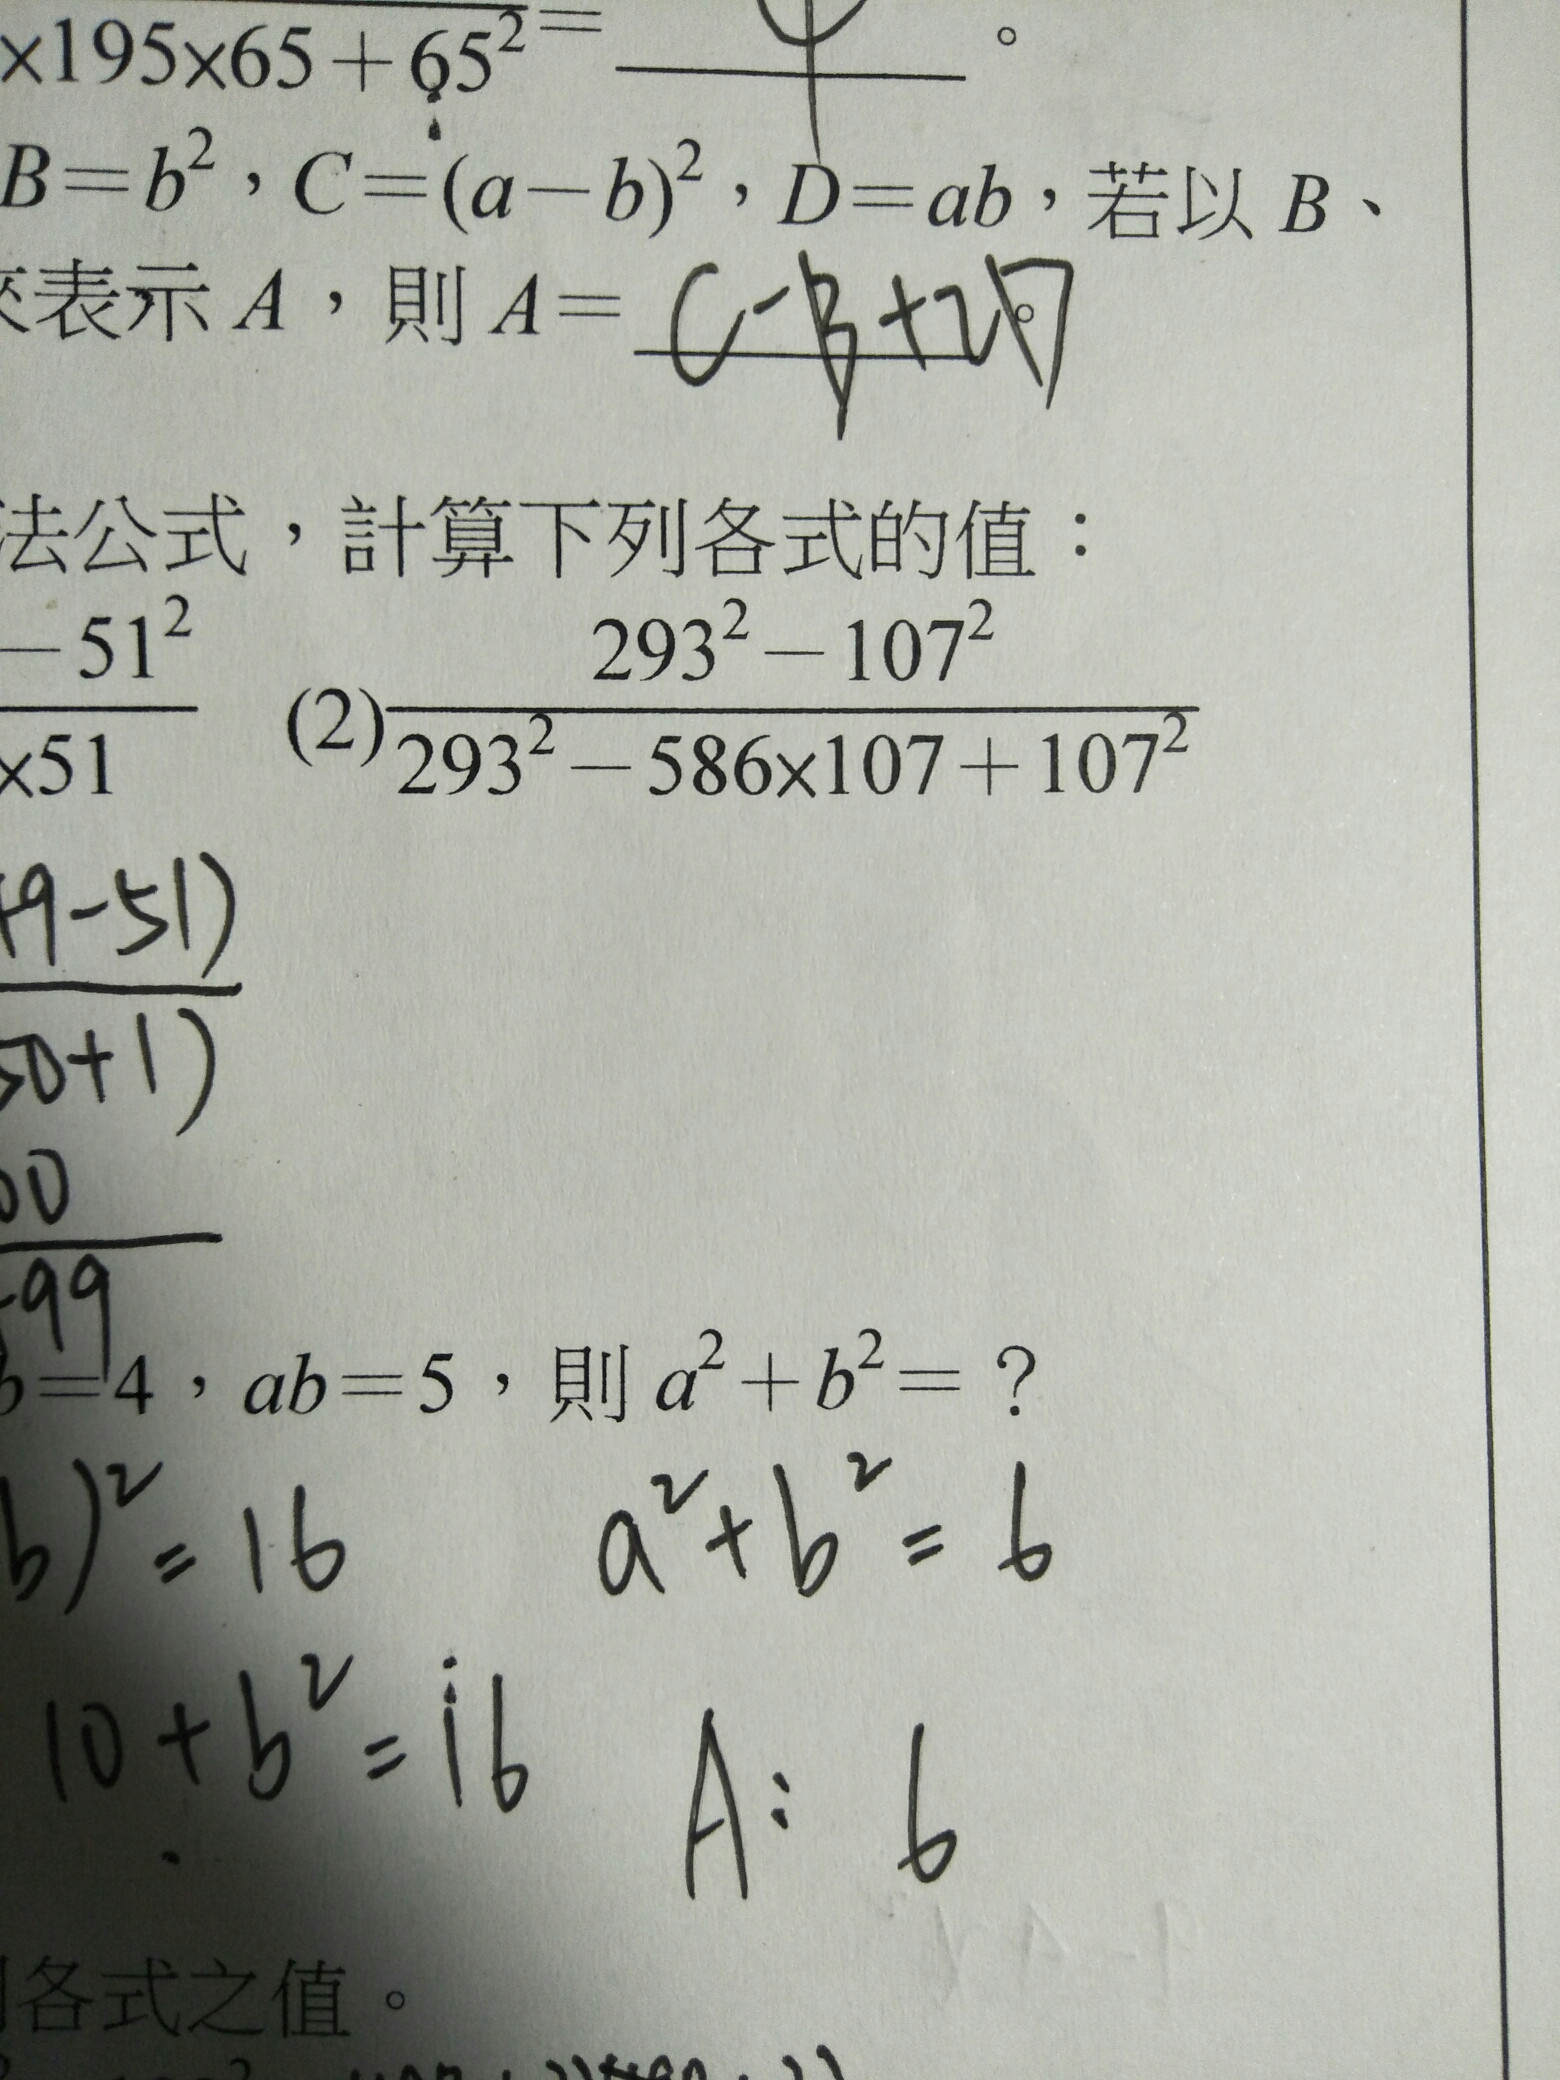 ×195×65+65²=
。
B=b²，C=(a-b)²，D=ab，若以 B、
來表示 A，則 A= C-B+2D。
法公式，計算下列各式的值：
-51² 293²-107²
×51 (2) 293²-586×107+107²
49-51)
50+1)
00
99
b=4，ab=5，則 a²+b²=？
b)²=16 a²+b²=6
10+b²=16 A: 6
各式之值。